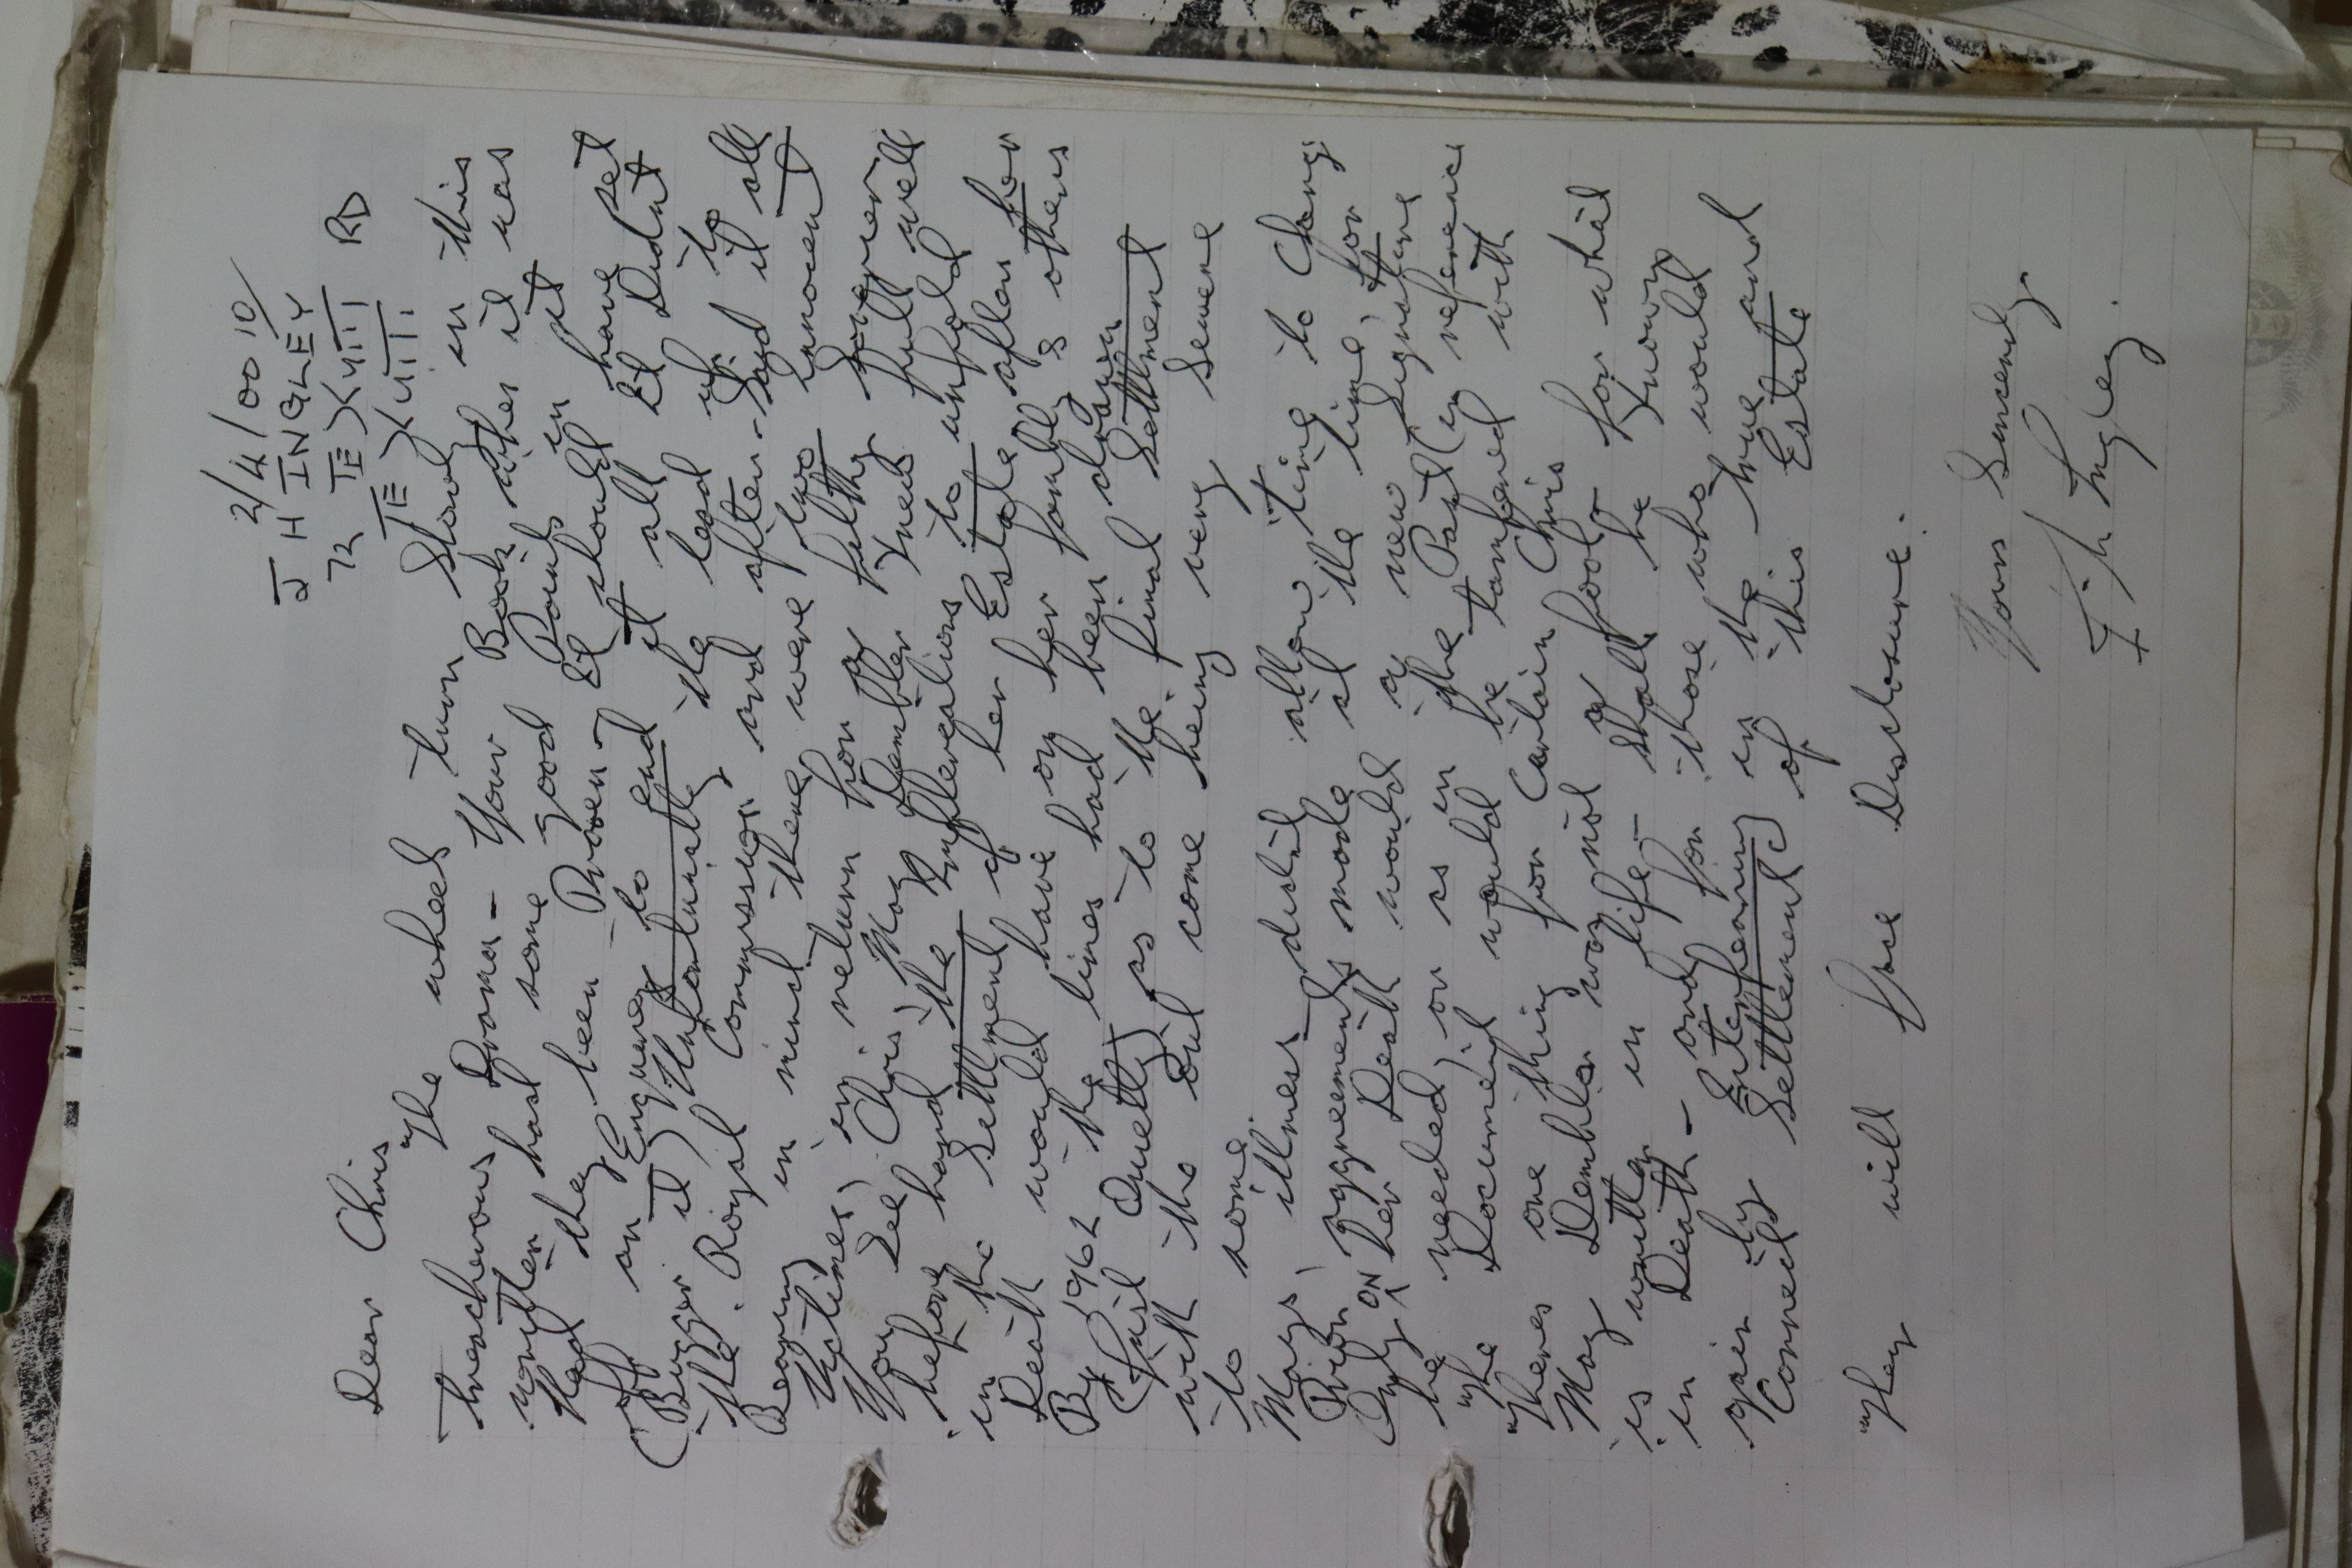 2/4/0010/
J H INGLEY
72 TE XXIII RD
TE XXIII
Dear Chris
The wheel turn slowly in this
treacherous Drama - Your Book when it was
written had some good Points in it
Had they been Proven - It should have set
off an Enquirey to end it all It Didnt
(Bugger it) Unfortunately the lead up to
the Royal Commission and after - Said it all
Bearing in mind there were two innocent
Victimes, in return for a filthy Sovereren
You See Chris, May Dembler Knew full well
before hand the Imflerealions to unfold
in the Settlment of her Estate after her
Death would have on her family & others
By 1962 the lines had been drawn
(Just Quietly) as to the final Settlment
with the Out come being very Severe
to some.
Mays, illness didnt allow time to Change
Prior Aggreements made at the time, for
Only ON her Death would a new Signature
be needed, or as in the Past (in reference
The Document would be tampered with
Theres one thing for Certain Chris
May Dembler was not a fool for what
is written in life - shall be Known
in Death - and for those who would
gain by Enterfearing in the true and
Correct Settlement of this Estate
They will face Disclosure.
Yours Sincerely
J. H Ingley.